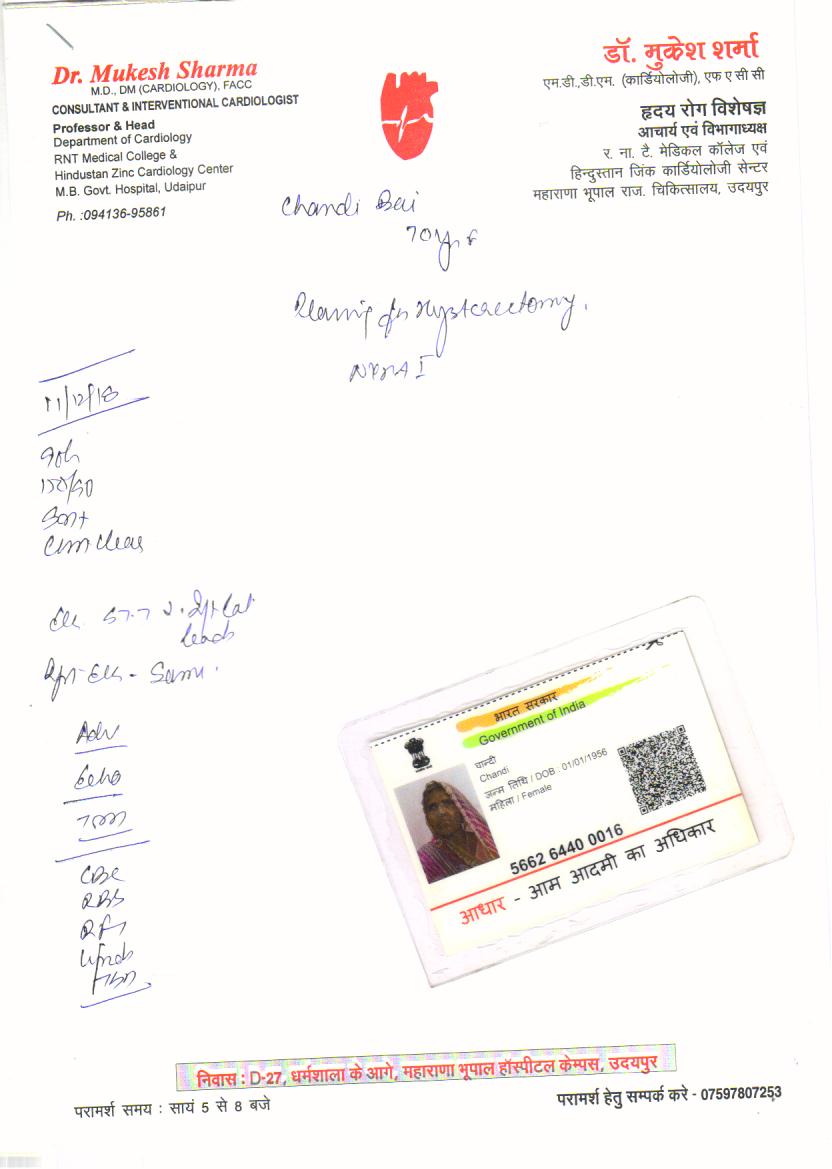 Dr. Mukesh Sharma
M.D., DM (CARDIOLOGY), FACC
CONSULTANT & INTERVENTIONAL CARDIOLOGIST
Professor & Head
Department of Cardiology
RNT Medical College &
Hindustan Zinc Cardiology Center
M.B. Govt. Hospital, Udaipur
Ph. :094136-95861
डॉ. मुकेश शर्मा
एम.डी.,डी.एम. (कार्डियोलोजी), एफ ए सी सी
हृदय रोग विशेषज्ञ
आचार्य एवं विभागाध्यक्ष
र. ना. टै. मेडिकल कॉलेज एवं
हिन्दुस्तान जिंक कार्डियोलोजी सेन्टर
महाराणा भूपाल राज. चिकित्सालय, उदयपुर
Chandi Bai
70yr
for Hysterectomy.
NYHA I
11/12/18
clear
leads
Adv
Echo
CBC
RBS
RFT
भारत सरकार
Government of India
चान्दी
Chandi
जन्म तिथि / DOB : 01/01/1956
महिला / Female
5662 6440 0016
आधार - आम आदमी का अधिकार
निवास : D-27, धर्मशाला के आगे, महाराणा भूपाल हॉस्पीटल केम्पस, उदयपुर
परामर्श समय : सायं 5 से 8 बजे
परामर्श हेतु सम्पर्क करे - 07597807253